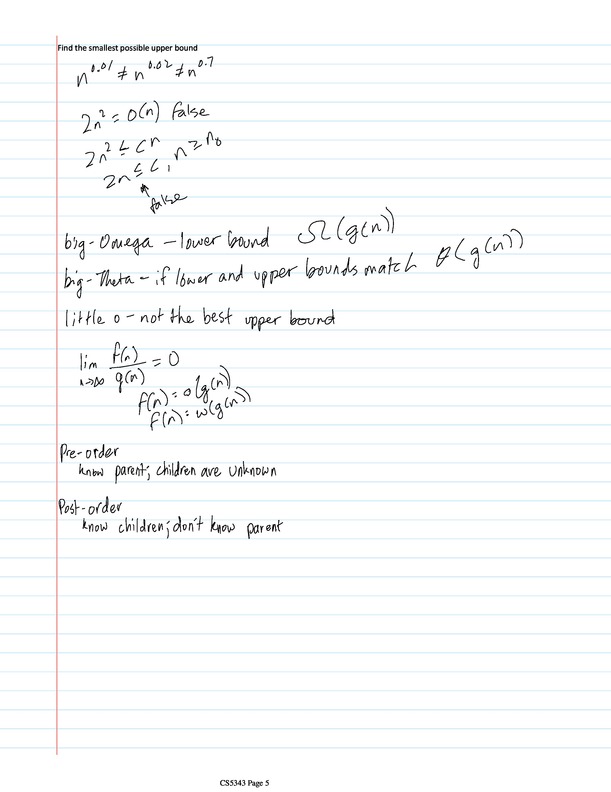 Find the smallest possible upper bound
n^0.01 ≠ n^0.02 ≠ n^0.7
2n² = O(n) false
2n² ≤ cn
2n ≤ c, n ≥ n₀
false
big-Omega - lower bound Ω(g(n))
big-Theta - if lower and upper bounds match θ(g(n))
little o - not the best upper bound
lim n→∞ f(n)/g(n) = 0
f(n) = o(g(n))
f(n) = ω(g(n))
Pre-order
know parent; children are unknown
Post-order
know children; don't know parent
CS5343 Page 5